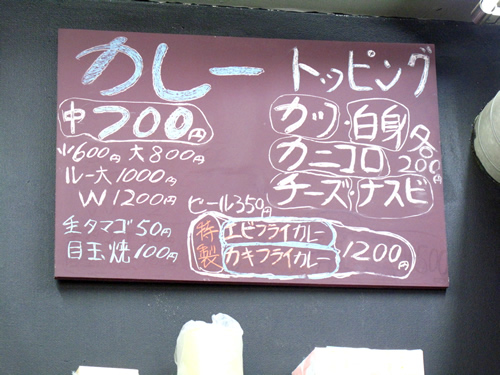 カレー
中 700円
小600円 大800円
ルー大1000円
W1200円
生タマゴ50円
目玉焼100円
トッピング
カツ・白身
カニコロ
チーズ・ナスビ
各200円
ビール350円
特製
エビフライカレー
カキフライカレー
1200円